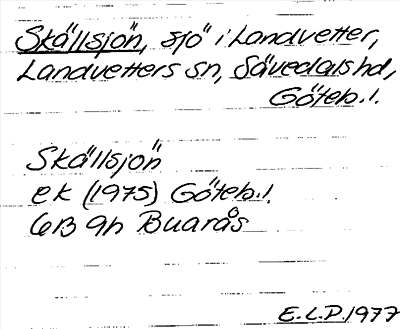 Skällsjön, sjö i Landvetter,
Landvetters sn, Sävedals hd,
Göteb. l.
Skällsjön
ek (1975) Göteb. l.
6B 9h Buarås
E.L.P. 1977